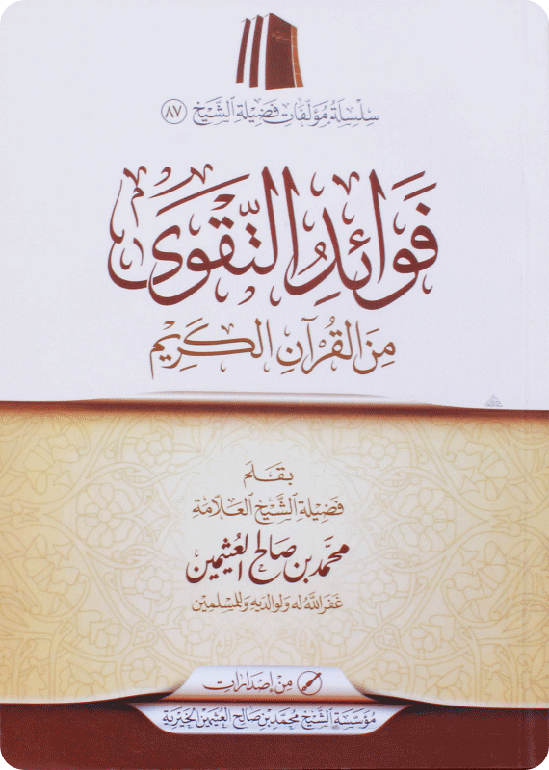 سلسلة مؤلفات فضيلة الشيخ (٨٧)
فَوَائِدُ التَّقْوَى
مِنَ القُرْآنِ الكَرِيْمِ
بقلم
فضيلة الشيخ العلامة
محمد بن صالح العثيمين
غفر الله له ولوالديه وللمسلمين
من إصدارات
مؤسسة الشيخ محمد بن صالح العثيمين الخيرية